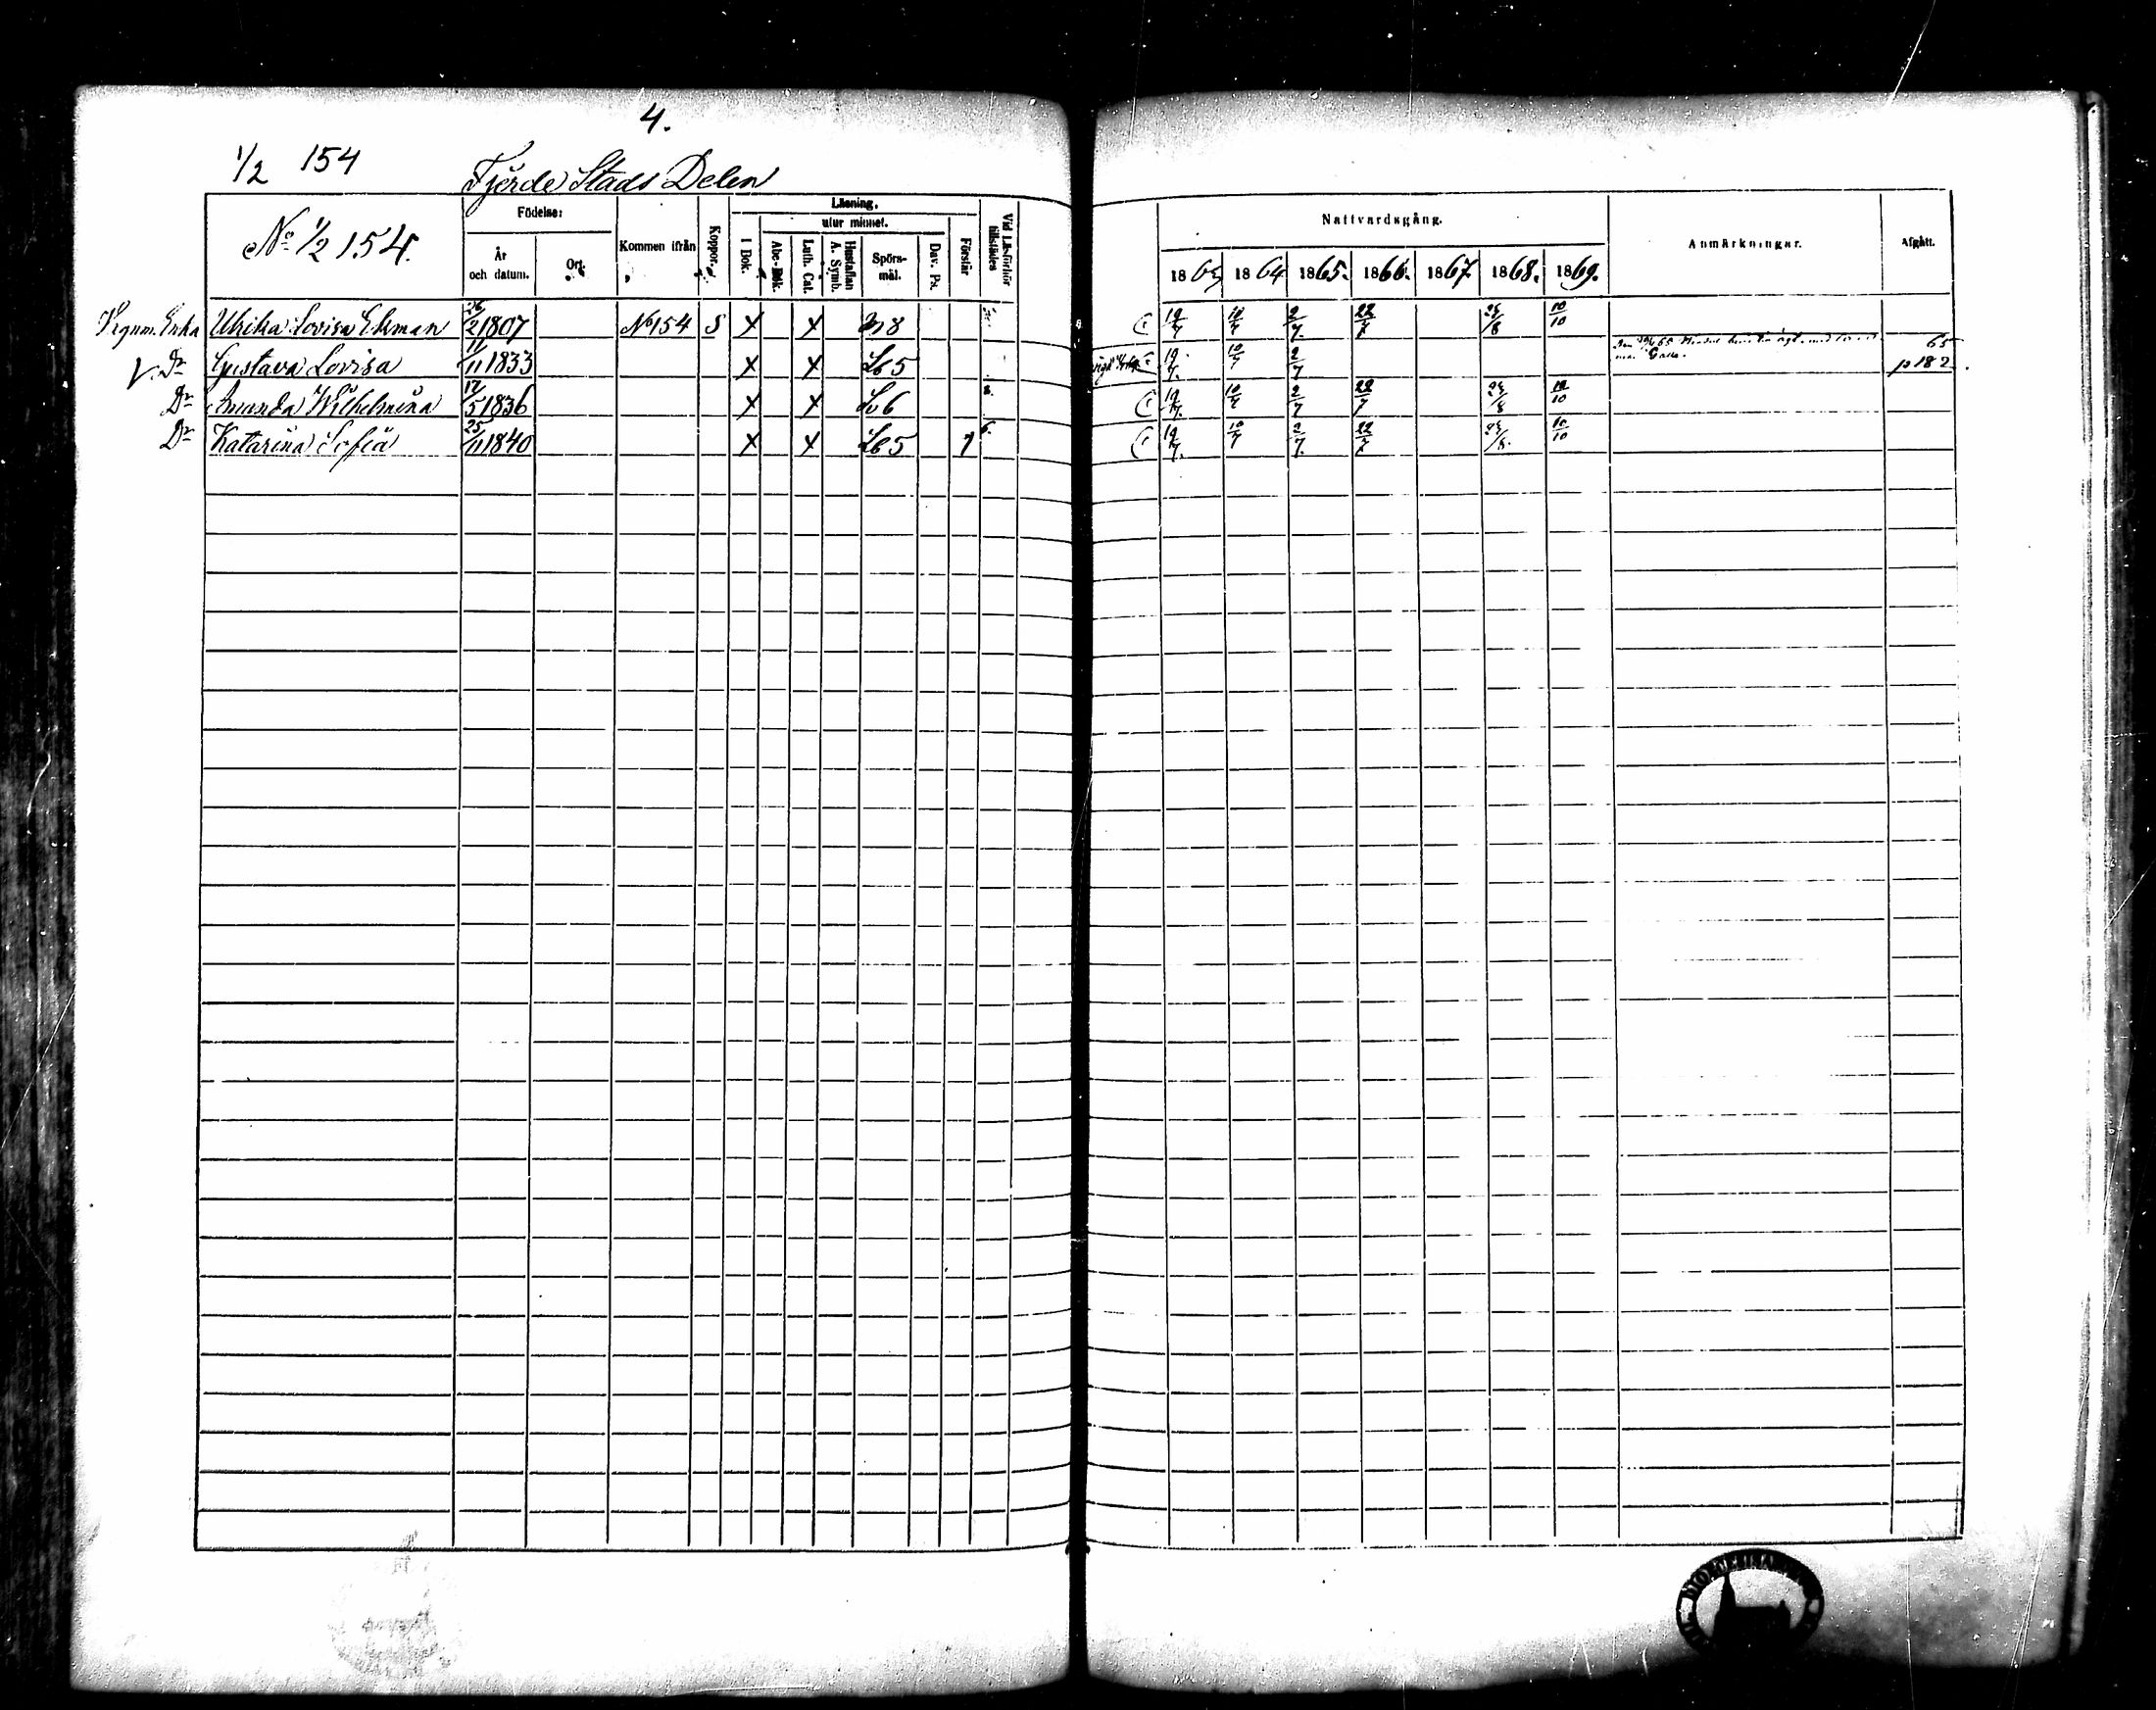 4.
1/2 154
Fjerde Stads Delen
No 1/2 154.
Födelse:
År och datum.
Ort.
Kommen ifrån
Koppor.
Läsning.
utur minnet.
I Bok.
Abc-Bok.
Luth. Cat.
Hustaflan A. Symb.
Spörsmål.
Dav. Ps.
Förstår
Vid Läsförhör tillstädes
Nattvardsgång.
1863 1864 1865. 1866. 1867 1868. 1869.
Anmärkningar.
Afgått.
Enka Ulrika Lovisa Ekman 26/2 1807 No 154 S X X 8 19/7 10/7 2/7 22/7 10/10
V. Dr Gustava Lovisa 11/11 1833 X X 5 19/7. 10/7 2/7 65 p 182.
Dr Amanda Wilhelmina 17/5 1836 X X 6 19/7. 10/7 2/7 22/7 10/10
Dr Katarina Sofia 25/11 1840 X X 5 1 19/7. 10/7 2/7. 22/7 10/10